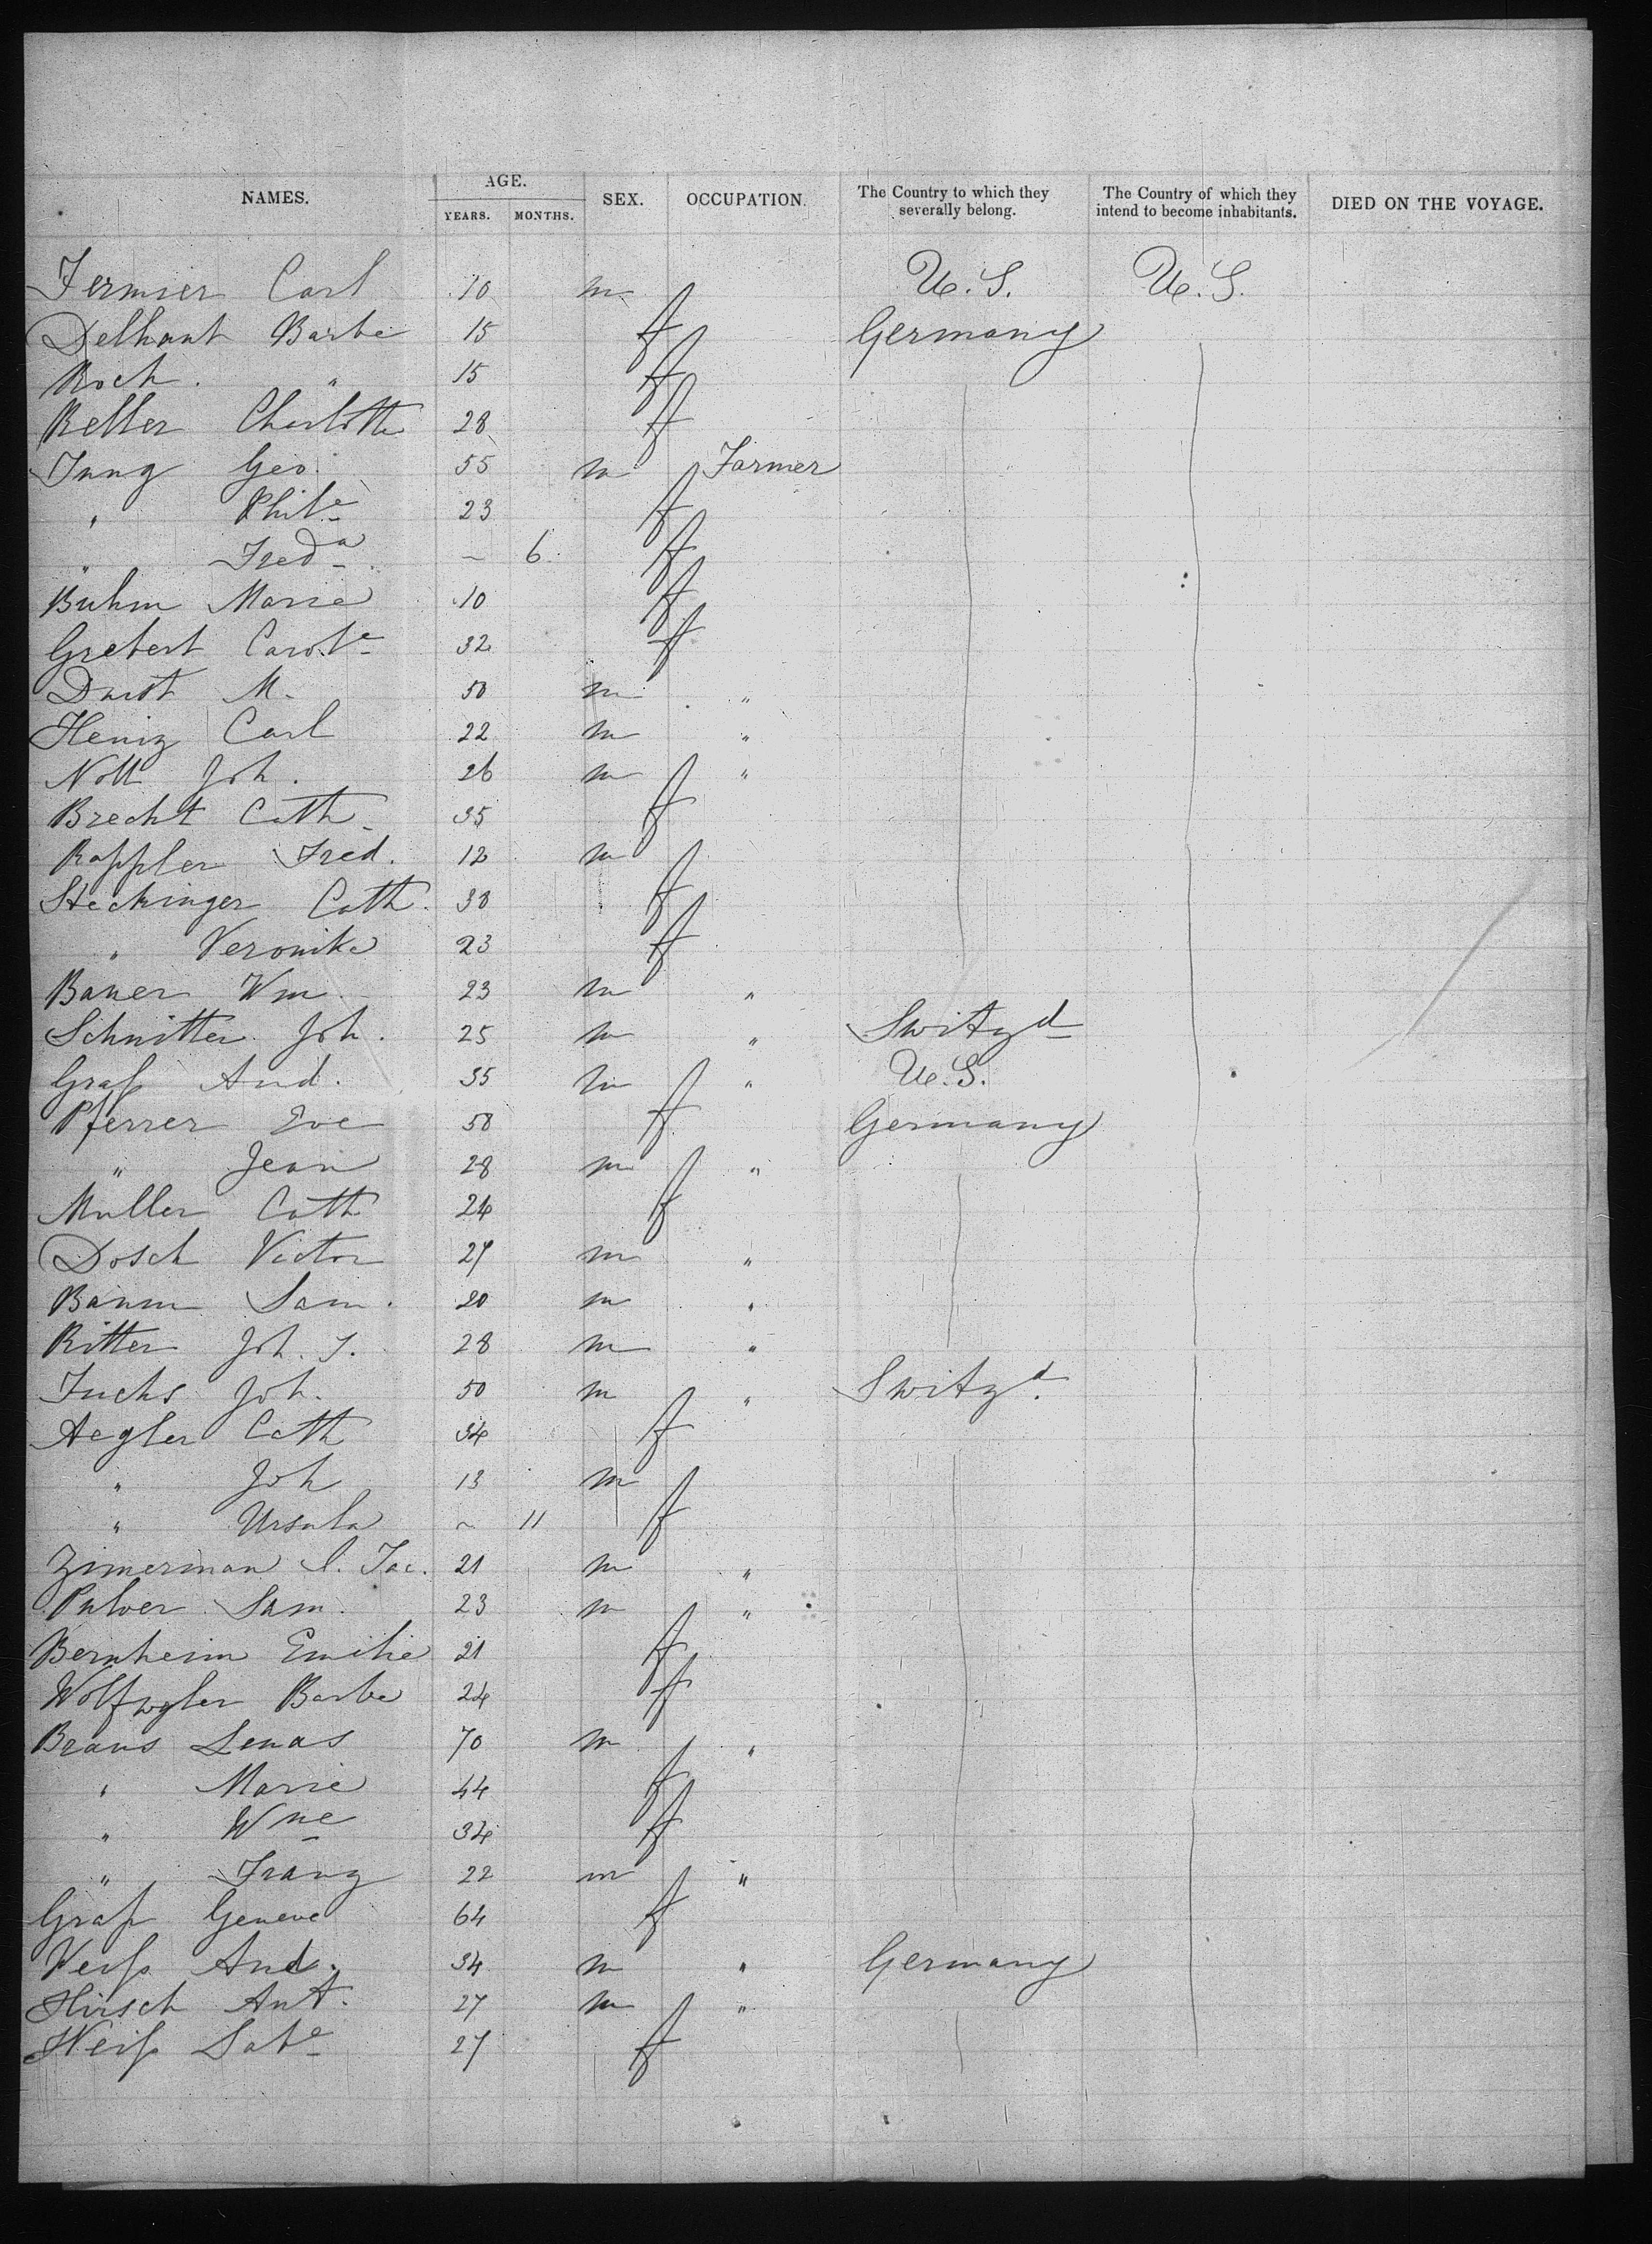 NAMES. AGE. YEARS. MONTHS. SEX. OCCUPATION. The Country to which they severally belong. The Country of which they intend to become inhabitants. DIED ON THE VOYAGE.
Fermier Carl 10 m U.S. U.S.
Delhant Barbe 15 f Germany
Koch " 15 f
Keller Charlotte 28 f
Jung Geo. 55 m Farmer
" Phile 23 f
" Freda - 6 f
Buhm Marie 10 f
Grebert Carole 32 f
Durst M. 50 m "
Heniz Carl 22 m "
Noll Joh. 26 m "
Brecht Cath. 35 f
Rappler Fred. 12 m
Steckinger Cath. 38 f
" Veronika 23 f
Bauer Wm. 23 m "
Schnitter Joh. 25 m " Switzd
Graß And. 35 m " U.S.
Pferrer Eve 58 f Germany
" Jean 28 m "
Muller Cath 24 f
Dosch Victor 27 m "
Baum Sam. 20 m "
Ritter Joh. J. 28 m "
Fuchs Joh. 50 m " Switzd.
Aegler Cath 34 f
" Joh 13 m
" Ursula ~ 11 f
Zimerman C. Jac. 21 m "
Pulver Sam. 23 m "
Bernheim Emilie 21 f
Wolfwyler Barbe 24 f
Braus Lenas 70 m "
" Marie 44 f
" Wne 34 f
" Franz 22 m "
Graf Geneve 64 f
Veiß And. 34 m " Germany
Hirsch Ant. 27 m "
Weiß Sabe 27 f